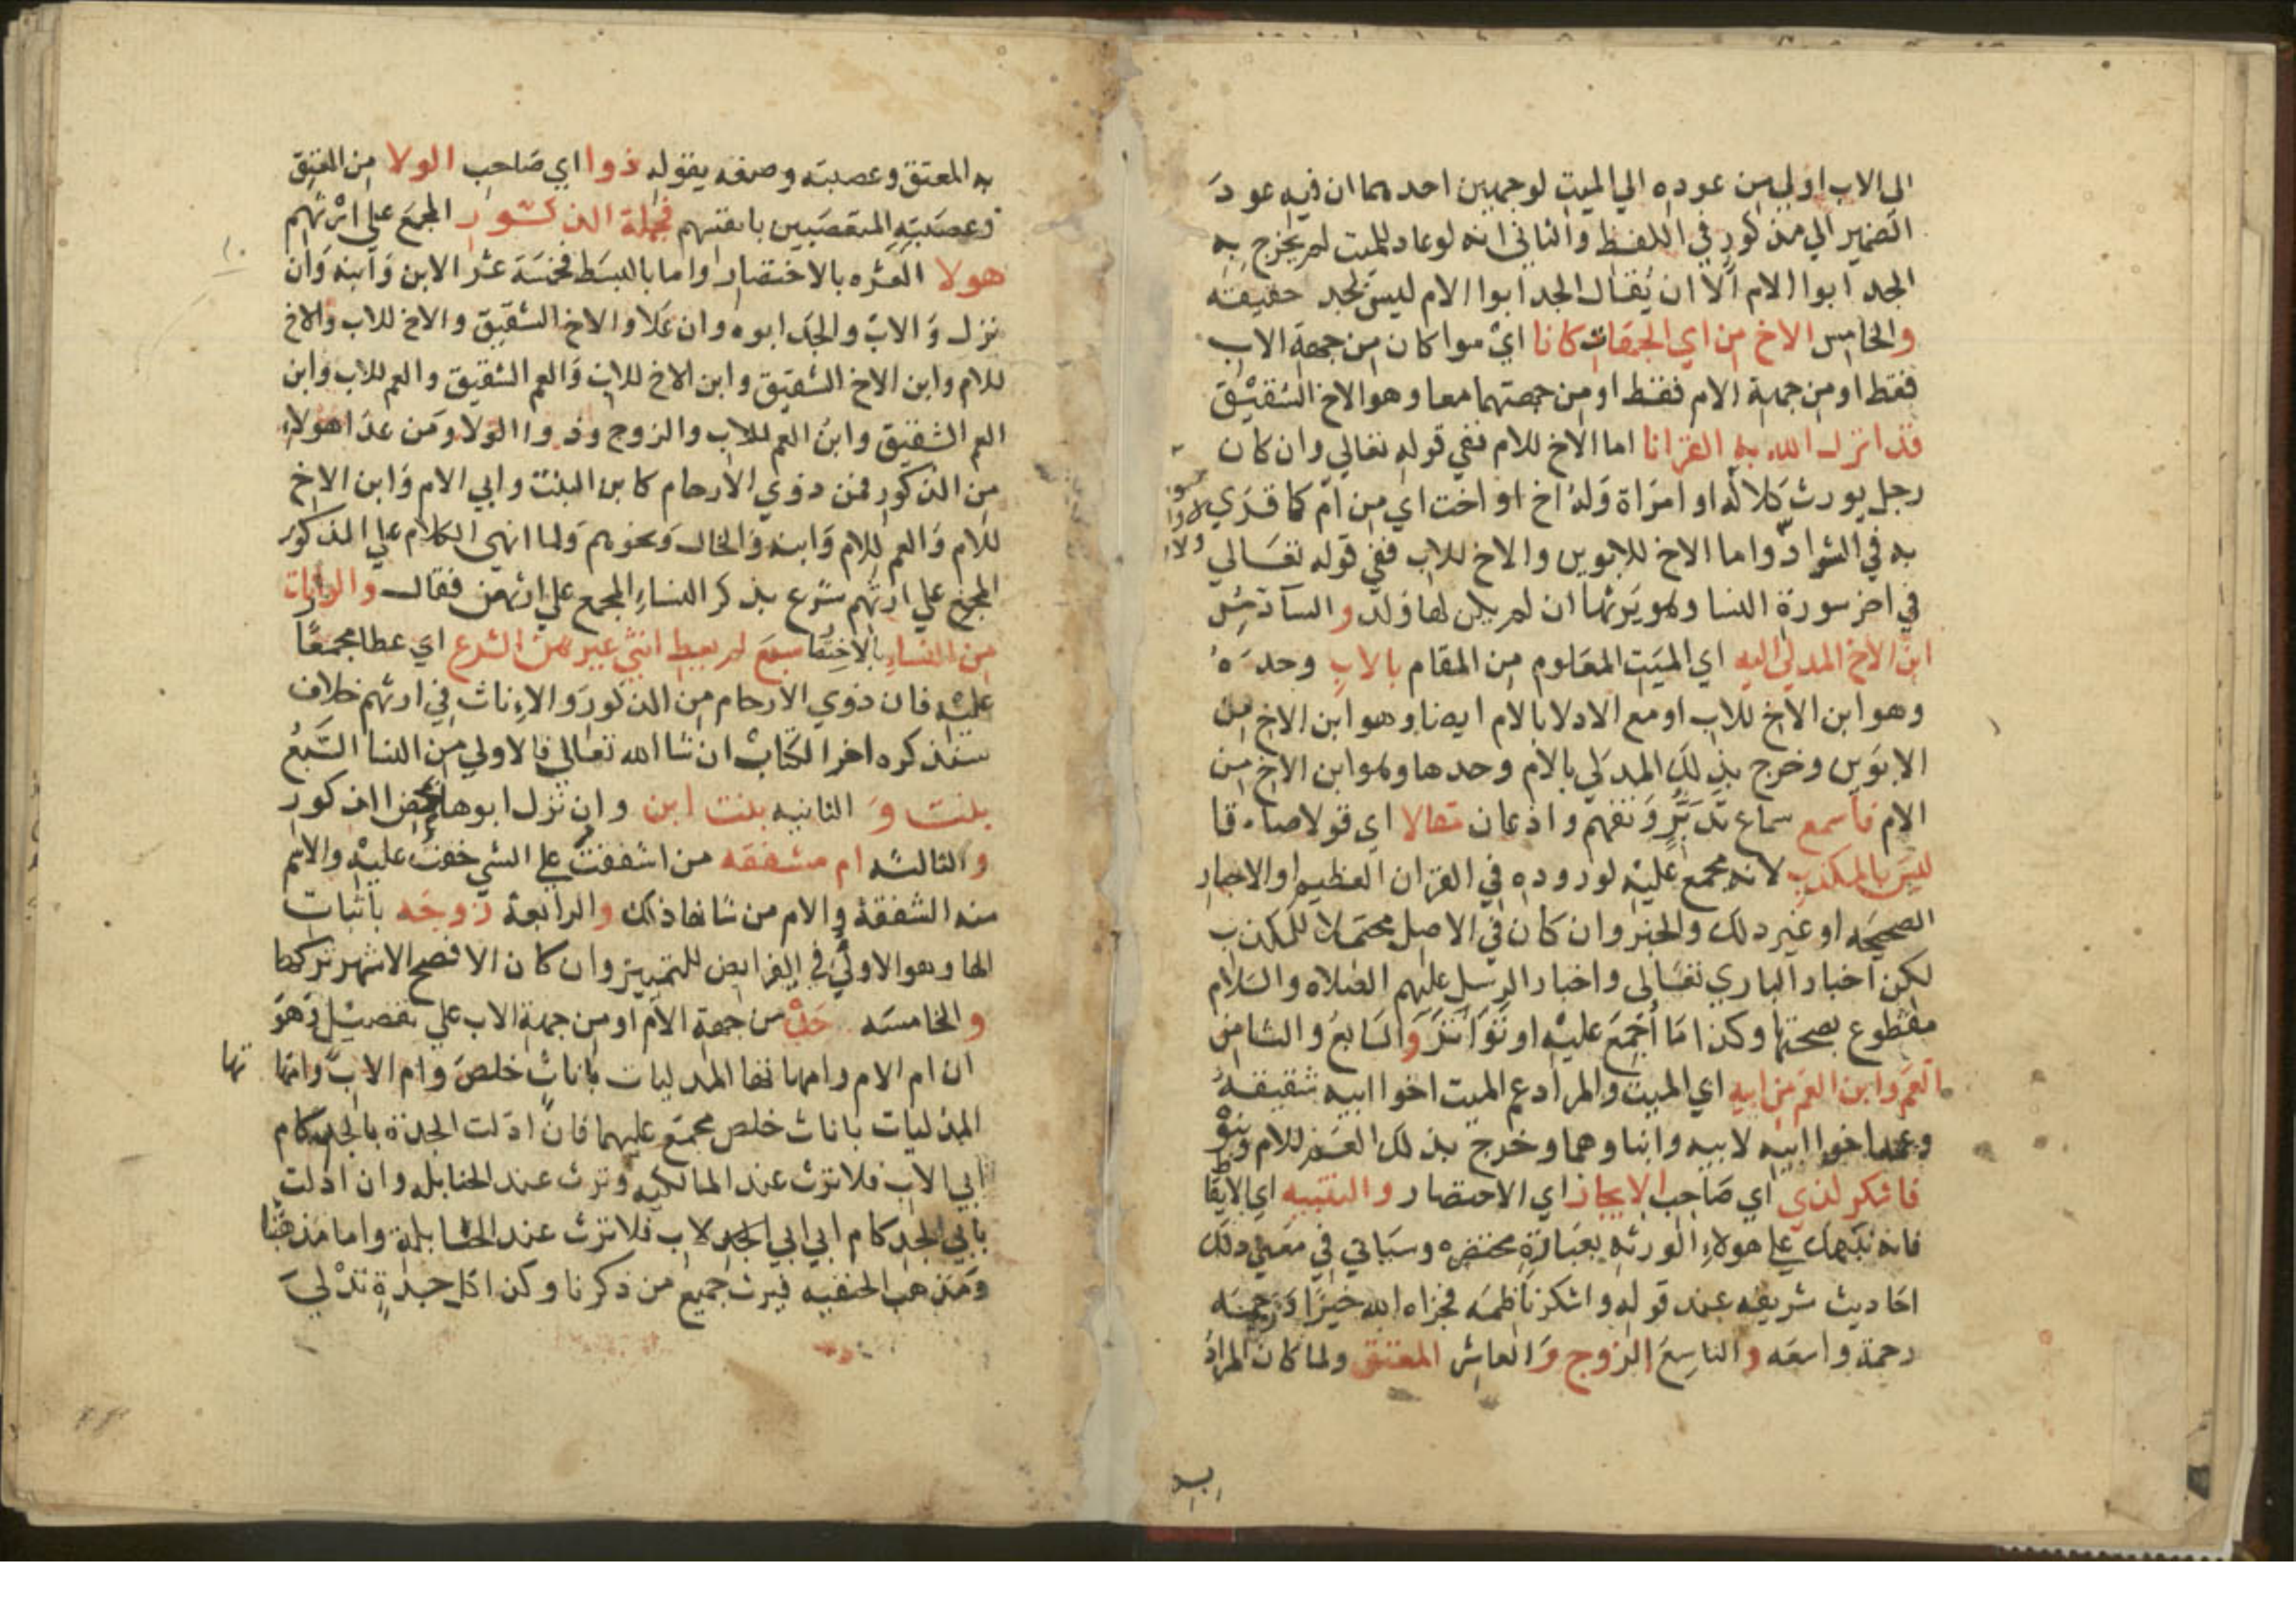 الي الاب اولي من عوده الي الميت لوجهين احدهما ان فيه عود
الضمير الي مذكور في اللفظ والثاني انه لو عاد للميت لم يخرج به
الجد ابوا الام الا ان يقال الجد ابوا الام ليس بجد حقيقته
والخامس الاخ من اي الجهات كانا اي سوا كان من جهة الاب
فقط او من جهة الام فقط او من جهتهما معا وهو الاخ الشقيق
قد انزل الله به القرانا اما الاخ للام ففي قوله تعالي وان كان
رجل يورث كلاله او امراة وله اخ او اخت اي من ام كما قري
به في الشواذ واما الاخ للابوين والاخ للاب ففي قوله تعالي
في اخر سورة النسا وهو يرثها ان لم يكن لها ولد والسادس
ابن الاخ المدلي اليه اي الميت المعلوم من المقام بالاب وحده
وهو ابن الاخ للاب او مع الادلا بالام ايضا وهو ابن الاخ من
الابوين وخرج بذلك المدلي بالام وحدها وهو ابن الاخ من
الام فاسمع سماع تدبر وتفهم واذعان مقالا اي قولا صادقا
ليس بالمكذب لانه مجمع عليه لوروده في القران العظيم او الاخبار
الصحيحه او غير ذلك والخبر وان كان في الاصل محتملا للكذب
لكن اخبار الباري تعالي واخبار الرسل عليهم الصلاه والسلام
مقطوع بصحتها وكذا ما اجمع عليه او تواتر والسابع والثامن
العم وابن العم من ابيه اي الميت والمراد عم الميت اخوا ابيه شقيقه
وعمه اخوا ابيه لابيه وابناوهما وخرج بذلك العم للام وبنوه
فاشكر لذي اي صاحب الايجاز اي الاختصار والتنبيه اي الايقاظ
فانه نبهك علي هولاء الورثه بعبارة مختصره وسياتي في معني ذلك
احاديث شريفه عند قوله واشكر ناظمه فجزاه الله خيرا ورحمه
رحمة واسعه والتاسع الزوج والعاشر المعتق ولما كان المراد
به المعتق وعصبته وصفه بقوله ذوا اي صاحب الولا من المعتق
وعصبته المتعصبين بانفسهم فجملة الذكور المجمع علي ارثهم
هولا العشره بالاختصار واما بالبسط فخمسة عشر الابن وابنه وان
نزل والاب والجد ابوه وان علا والاخ الشقيق والاخ للاب والاخ
للام وابن الاخ الشقيق وابن الاخ للاب والعم الشقيق والعم للاب وابن
العم الشقيق وابن العم للاب والزوج وذوا الولا ومن عدا هولاء
من الذكور فمن ذوي الارحام كابن البنت وابي الام وابن الاخ
للام والعم للام وابنه والخال ونحوهم ولما انهي الكلام علي الذكور
المجمع علي ارثهم شرع بذكر النساء المجمع علي ارثهن فقال والوارثات
من النساء بالاختصار سبع لم يعط انثي غيرهن الشرع اي عطا مجمعًا
عليه فان ذوي الارحام من الذكور والاناث في ارثهم خلاف
سنذكره اخر الكتاب ان شا الله تعالي فالاولي من النسا السبع
بنت و الثانيه بنت ابن وان نزل ابوها بمحض الذكور
والثالثه ام مشفقه من اشفقت علي الشي خفت عليه والاسم
منه الشفقة والام من شانها ذلك والرابعة زوجه باثبات
الها وهو الاولي في الفرايض للتمييز وان كان الافصح الاشهر تركها
والخامسه جدة من جهة الام او من جهة الاب علي تفصيل وهو
ان ام الام وامهاتها المدليات باناث خلص وام الاب وامها
تها
المدليات باناث خلص مجمع عليهما فان ادلت الجدة بالجد كام
ابي الاب فلا ترث عند المالكيه وترث عند الحنابله وان ادلت
بابي الجد كام ابي ابي الجد لاب فلا ترث عند الحنابلة واما مذهبنا
ومذهب الحنفيه فيرث جميع من ذكرنا وكذا كل جدة تدلي